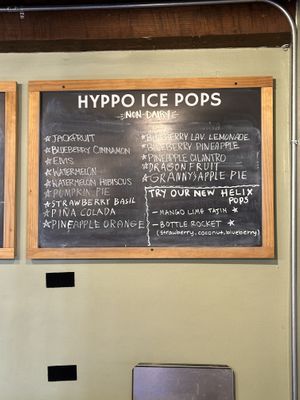 HYPPO ICE POPS
NON-DAIRY
★JACKFRUIT
★BLUEBERRY CINNAMON
★ELVIS
★WATERMELON
★WATERMELON HIBISCUS
★PUMPKIN PIE
★STRAWBERRY BASIL
★PIÑA COLADA
★PINEAPPLE ORANGE
★BLUEBERRY LAV. LEMONADE
★BLUEBERRY PINEAPPLE
★PINEAPPLE CILANTRO
★DRAGON FRUIT
★GRANNY'S APPLE PIE
TRY OUR NEW HELIX
POPS
- MANGO LIME TAJIN ★
- BOTTLE ROCKET ★
(strawberry, coconut, blueberry)